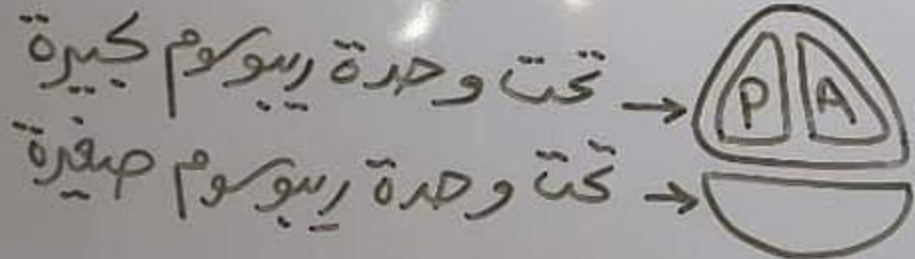 تحت وحدة ريبوسوم كبيرة
P A
تحت وحدة ريبوسوم صغيرة